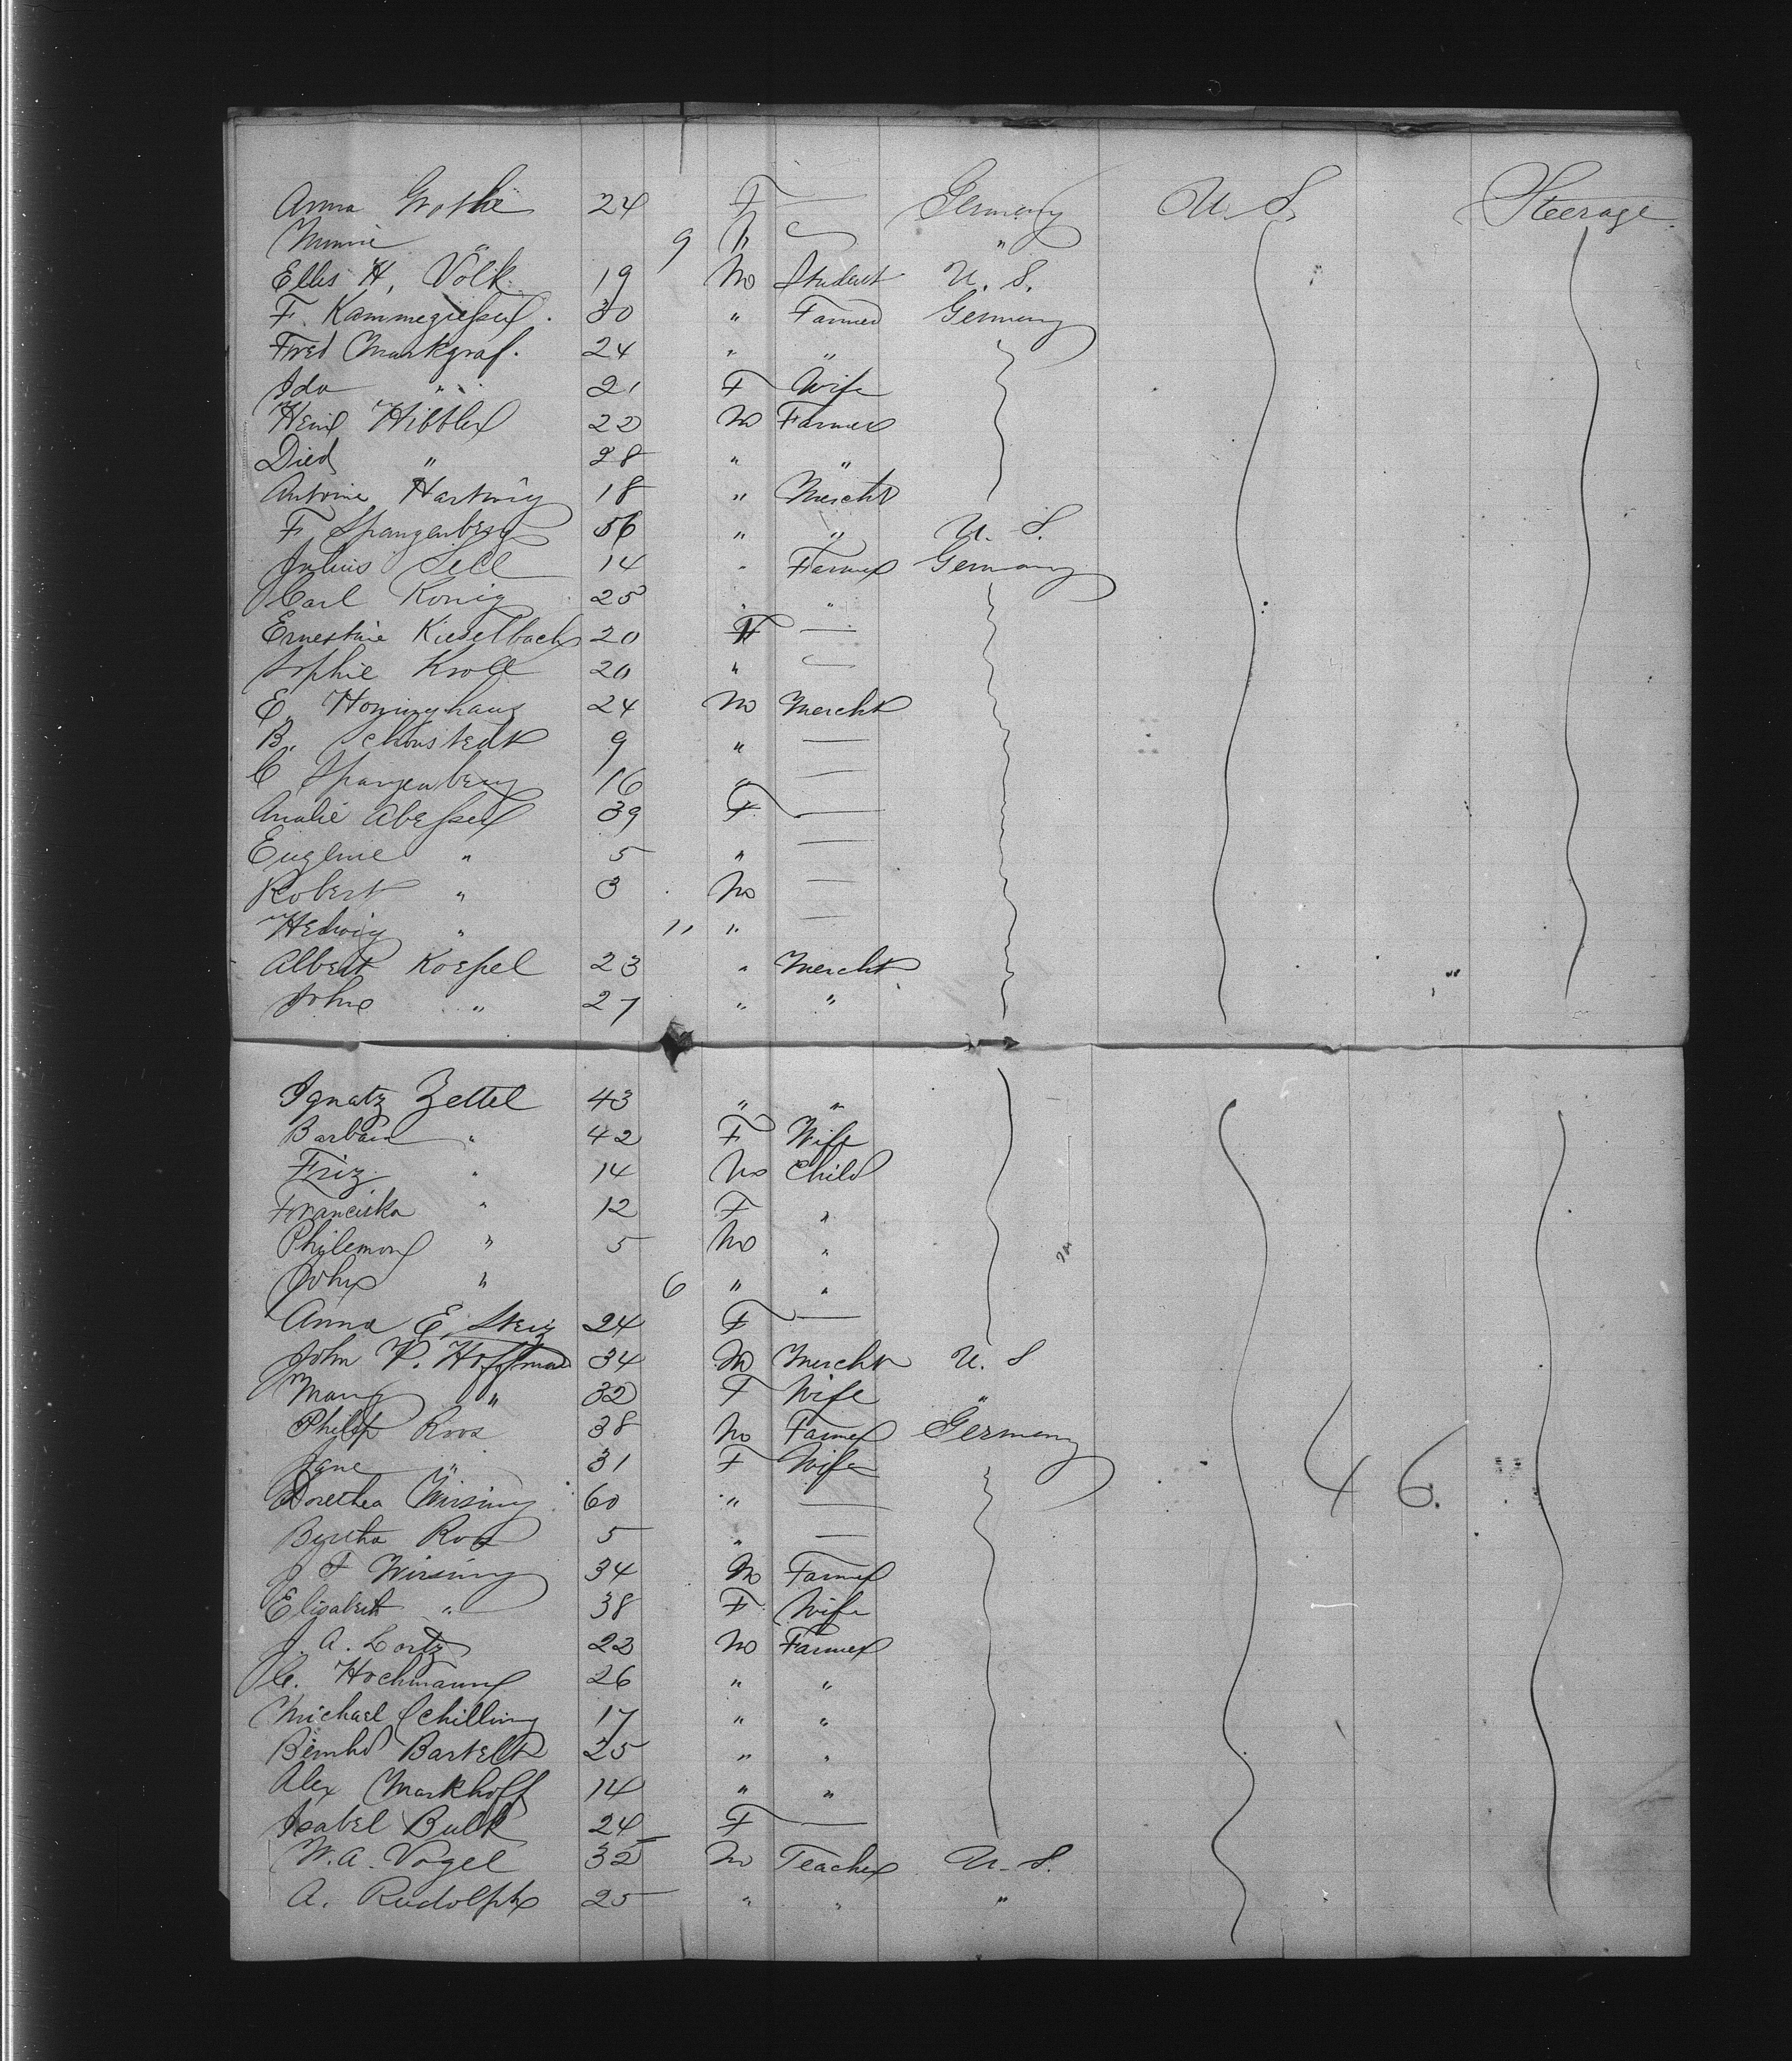 Anna Grothe 24 F — Germany U. S. Steerage
Minnie " 9 " — "
Ellis H. Volk 19 M Student U. S.
F. Kammegiesser 30 " Farmer Germany
Fred Markgraf. 24 " "
Ida " 21 F Wife
Heinr Hibbler 22 M Farmer
Died " 28 " "
Antoine Hartwig 18 " Mercht
F Spangenberg 56 " " U. S.
Julius Sell 14 " Farmer Germany
Carl Konig 25 " "
Ernestine Kieselbach 20 F —
Sophie Kroll 20 " —
E. Honinghaus 24 M Mercht
B. Schonstedt 9 " —
C Spangenberg 16 " —
Amalie Abesser 39 F —
Eugenie " 5 " —
Robert " 3 M —
Hedwig " 11 " —
Albert Koepel 23 " Mercht
John " 27 " "
Ignatz Zettel 43 " "
Barbara " 42 F Wife
Friz " 14 M Child
Franciska " 12 F "
Philemon " 5 M "
John " 6 " "
Anna E. Steiz 24 F —
John P. Hoffman 34 M Mercht U. S
Mary " 32 F Wife "
Philip Roos 38 M Farmer Germany
Jane " 31 F Wife
Dorethea Wirsing 60 " —
Bertha Roos 5 " —
J F Wirsing 34 M Farmer
Elisabeth " 38 F Wife
J. A. Lortz 22 M Farmer
C. Hochmann 26 " "
Michael Schilling 17 " "
Bernhd Bartelt 25 " "
Alex Markhoff 14 " "
Isabel Bulk 24 F —
W. A. Vogel 32 M Teacher U. S.
A. Rudolph 25 " " "
46.